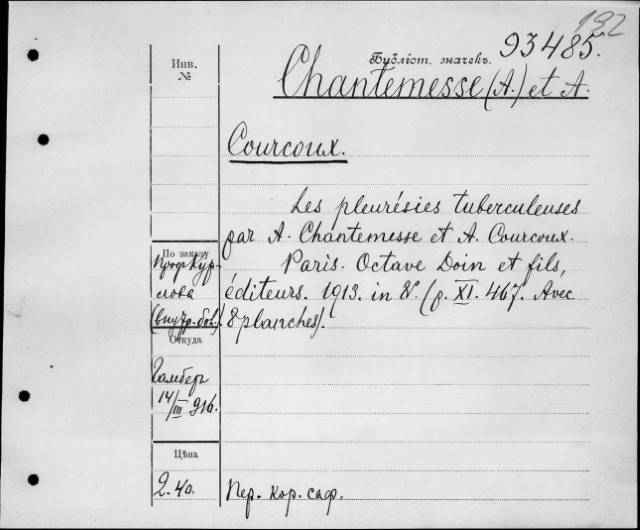 192
Инв.
№
Библіот. значекъ. 93485.
Chantemesse (A.) et A.
Courcoux.
Les pleurésies tuberculeuses
par A. Chantemesse et A. Courcoux.
Paris. Octave Doin et fils,
éditeurs. 1913. in 8°. (p. XI. 467. Avec
8 planches).
По заказу
Проф. Кур-
лова
(внутр. бол.).
Откуда
Гамберъ
14/III 916.
Цѣна
2.40.
Пер. кор. саф.